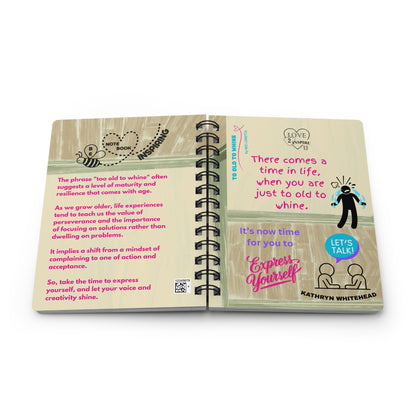 BEE
NOTE
BOOK
INSPIRING
The phrase "too old to whine" often
suggests a level of maturity and
resilience that comes with age.
As we grow older, life experiences
tend to teach us the value of
perseverance and the importance
of focusing on solutions rather than
dwelling on problems.
It implies a shift from a mindset of
complaining to one of action and
acceptance.
So, take the time to express
yourself, and let your voice and
creativity shine.
TO OLD TO WHINE
LOVE
There comes a
time in life,
when you are
just to old to
whine.
It's now time
for you to
Express
Yourself
LET'S
TALK!
KATHRYN WHITEHEAD